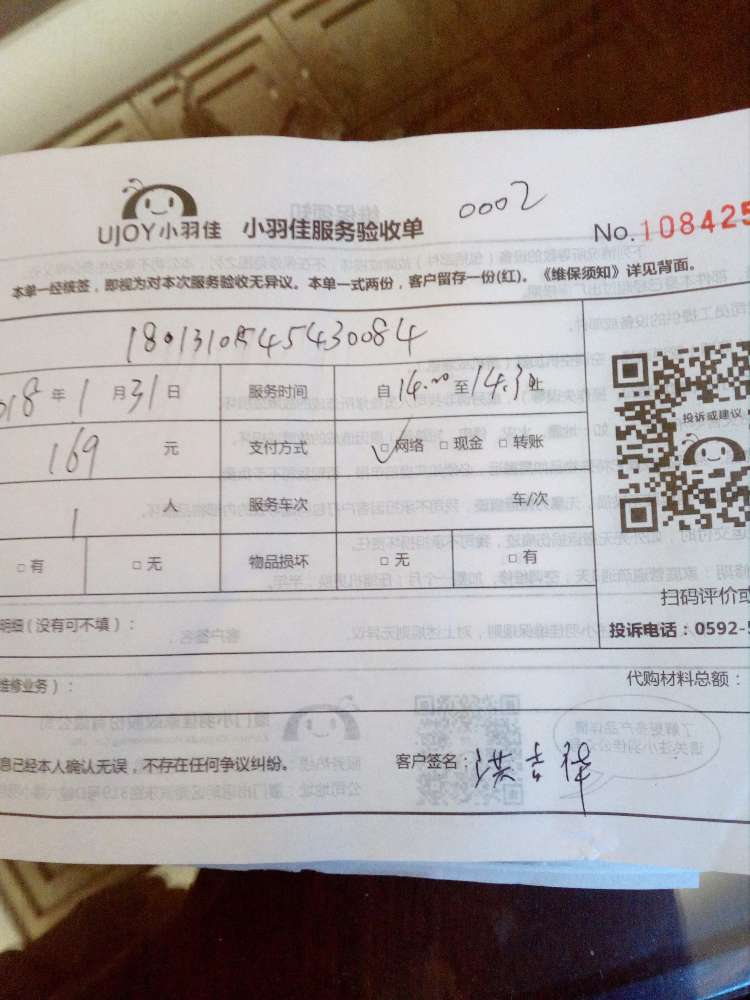 0002
UJOY小羽佳 小羽佳服务验收单
No. 108425
本单一经核签，即视为对本次服务验收无异议。本单一式两份，客户留存一份(红)。《维保须知》详见背面。
18年1月31日 服务时间 自14:00至14:30
169元 支付方式 □网络 □现金 □转账
投诉或建议
1人 服务车次 车/次
□有 □无 物品损坏 □无 □有
扫码评价或
明细(没有可不填)： 投诉电话：0592-5
维修业务)： 代购材料总额：
息已经本人确认无误，不存在任何争议纠纷。 客户签名：洪吉祥